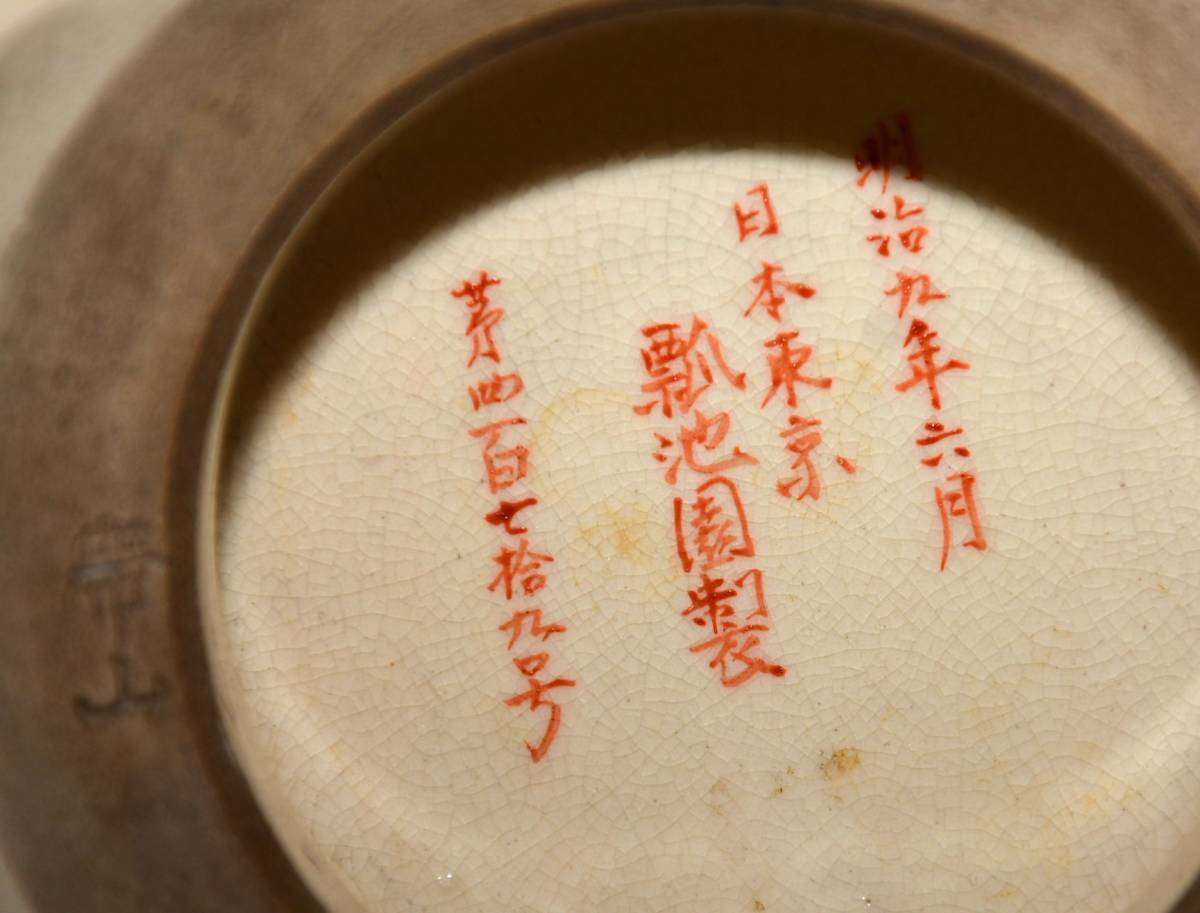 明治九年六月
日本東京
瓢池園製
苐四百七拾九号